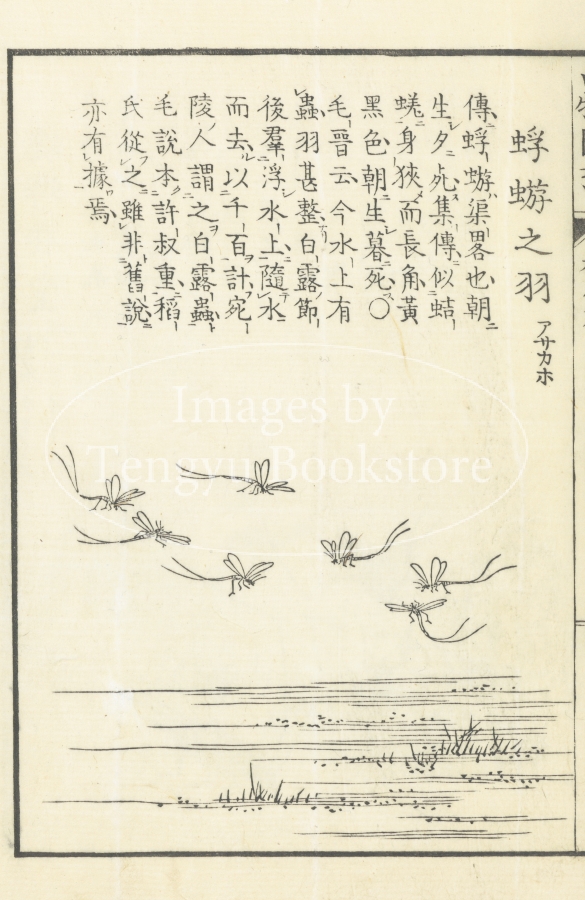 蜉蝣之羽 アサカホ
傳蜉蝣渠畧也朝
生夕死集傳似蛣
蜣身狹而長角黃
黑色朝生暮死〇
毛晋云今水上有
蟲羽甚整白露節
後羣浮水上隨水
而去以千百計宛
陵人謂之白露蟲
毛說本許叔重稻
氏從之雖非舊說
亦有據焉
Images by
Tengyu Bookstore